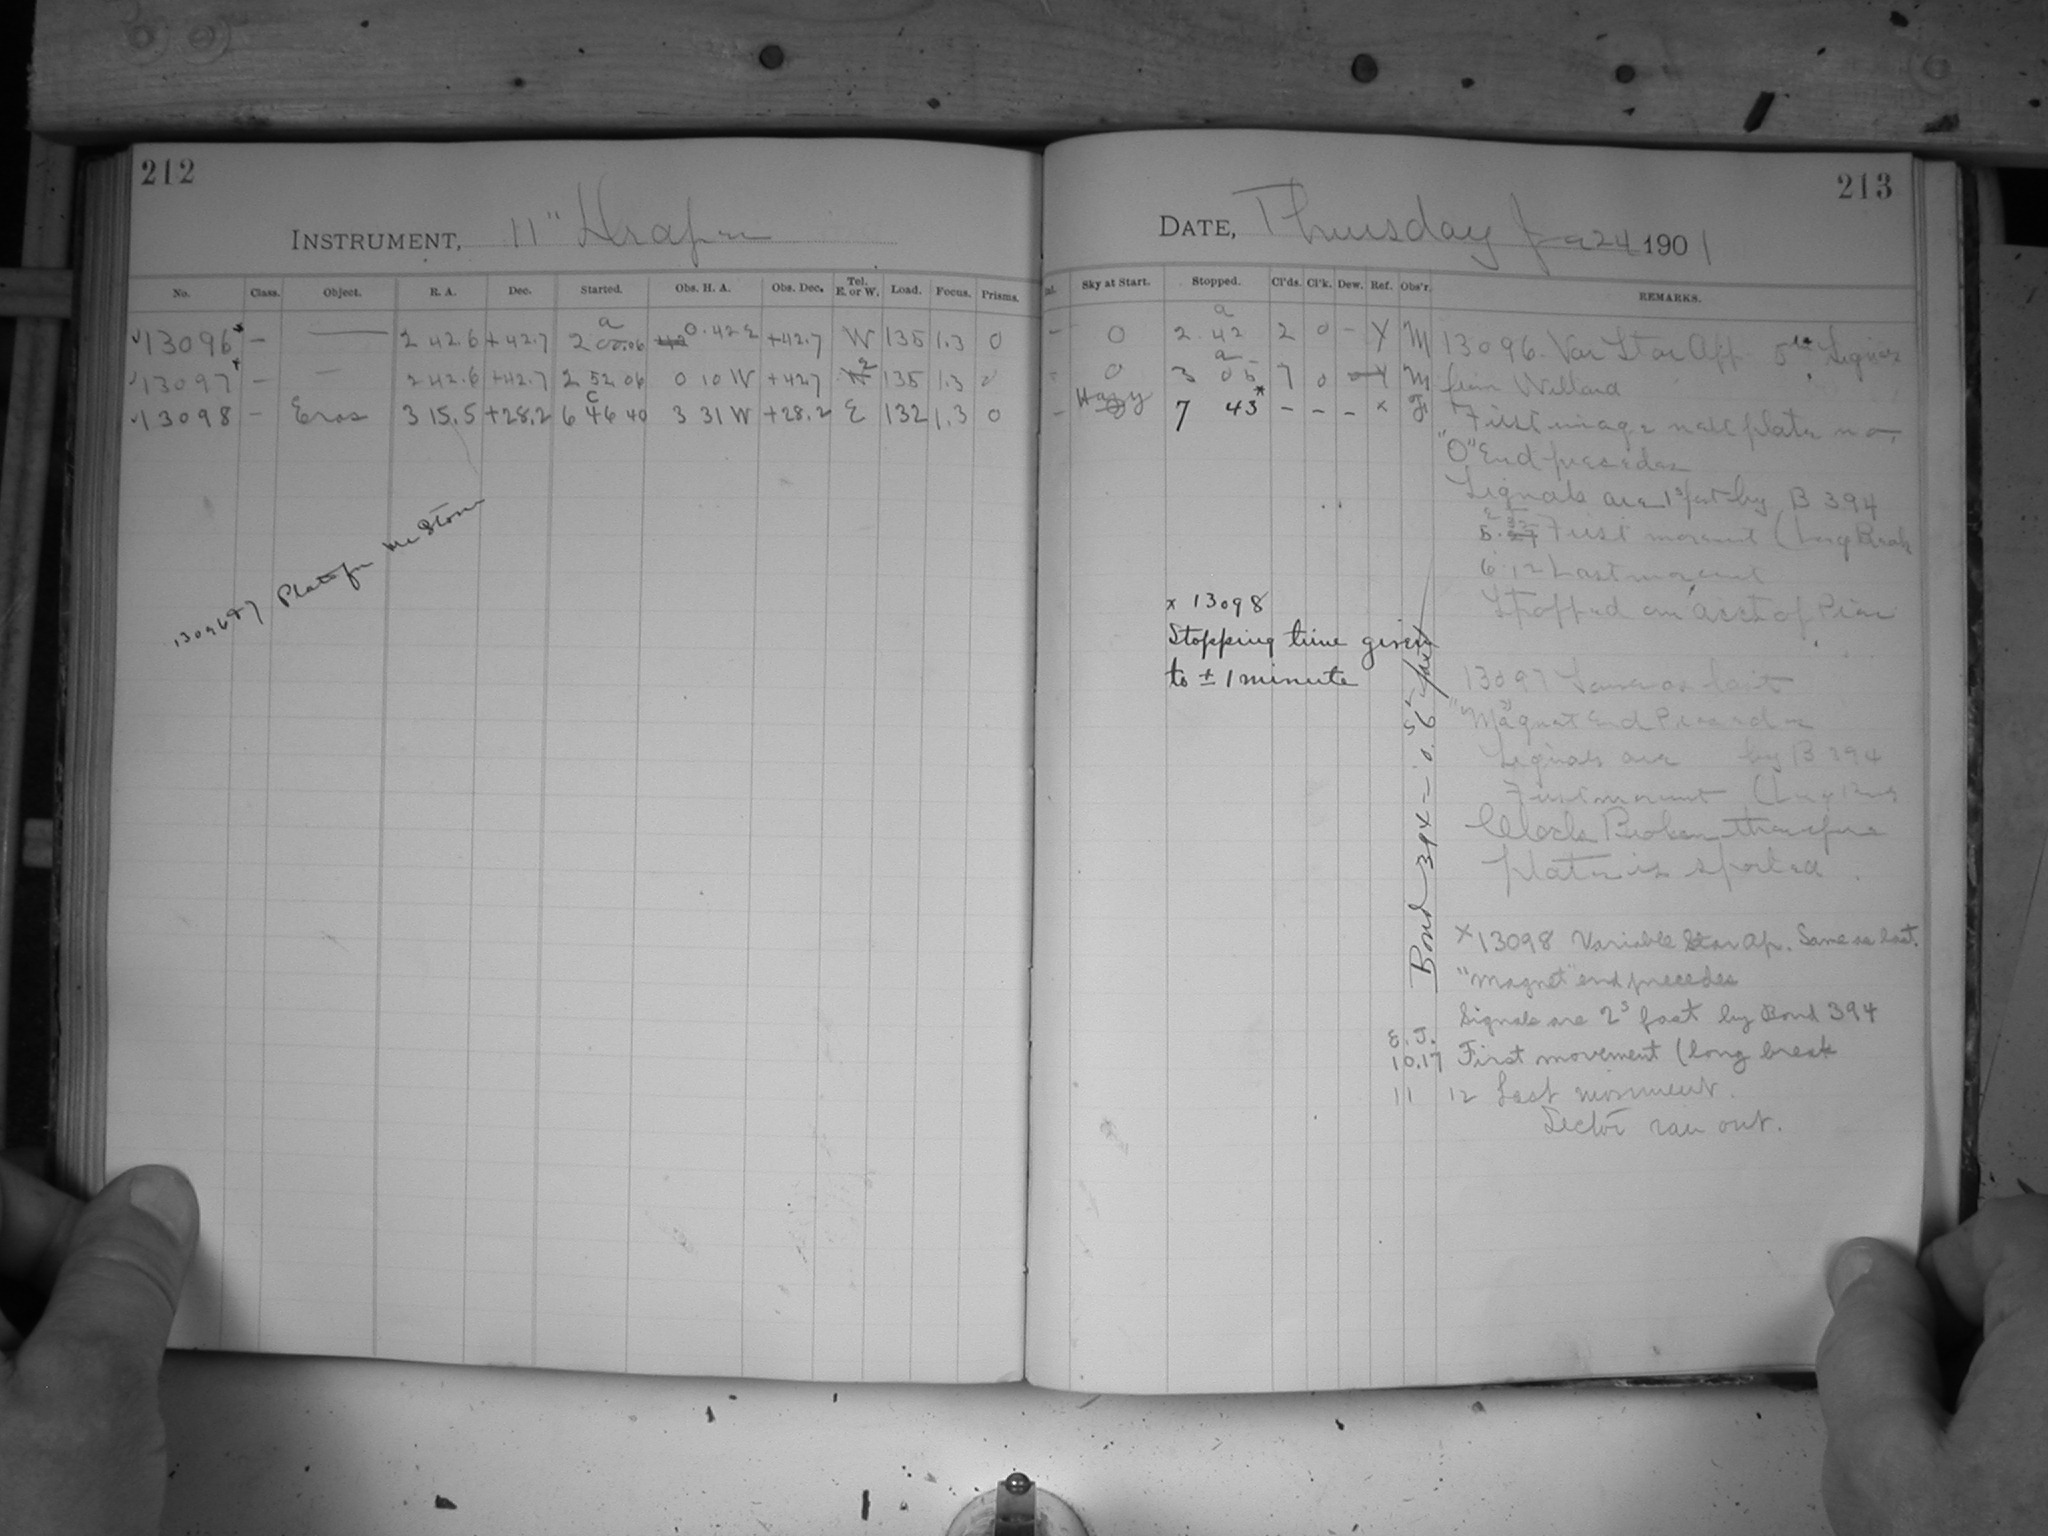 212
INSTRUMENT, 11" Draper
No. Class. Object. R. A. Dec. Started. Obs. H. A. Obs. Dec. Tel. E. or W. Load. Focus. Prisms.
13096 - — 2 42.6 +42.7 2 0.42 E +42.7 W 135 1.3 0
13097 - — 2 42.6 +42.7 2 52 06 0 10 W +42.7 135 1.3
13098 - Eros 3 15.5 +28.2 6 46 40 3 31 W +28.2 E 132 1.3 0
13096 & 7
213
DATE, Thursday Ja 24 1901
Sky at Start. Stopped. Cl'ds. Cl'k. Dew. Ref. Obs'r. REMARKS.
- 0 2. 42 2 0 - Y M
0 3 05 7 0 Y M
- Hazy 7 43* - - - x F
13096. Var Star App 5
from Willard
First image plate
"O" End precedes
Signals are 1s fast by B 394
First movement (Long Break
6.12 Last movement
Stopped on acct of Pier
x 13098
Stopping time given
to ± 1 minute
Bond 394 = 0.6 fast
13097 Same as last
"Magnet" end
Signals are by B 394
First movement
Clock Broken therefore
plate is spoiled.
x 13098 Variable Star Ap. Same as last.
"Magnet" end precedes
Signals are 2s fast by Bond 394
E. T.
10.17 First movement (long break
11 12 Last movement.
Sector ran out.